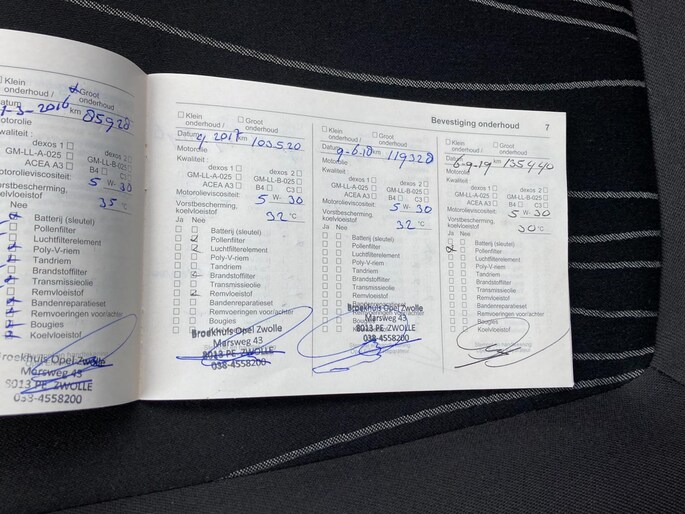 Klein onderhoud / Groot onderhoud
1-3-2016 km 85928
Motorolie
Kwaliteit :
dexos 1 dexos 2
GM-LL-A-025 GM-LL-B-025
ACEA A3 B4 C3
Motorolieviscositeit:
5 W- 30
Vorstbescherming, koelvloeistof
35 °C
Ja Nee
Batterij (sleutel)
Pollenfilter
Luchtfilterelement
Poly-V-riem
Tandriem
Brandstoffilter
Transmissieolie
Remvloeistof
Bandenreparatieset
Remvoeringen voor/achter
Bougies
Koelvloeistof
Broekhuis Opel Zwolle
Marsweg 43
8013 PE ZWOLLE
038-4558200
Bevestiging onderhoud 7
Klein onderhoud / Groot onderhoud
Datum 2017 km 103520
Motorolie
Kwaliteit :
dexos 1 dexos 2
GM-LL-A-025 GM-LL-B-025
ACEA A3 B4 C3
Motorolieviscositeit:
5 W- 30
Vorstbescherming, koelvloeistof
32 °C
Ja Nee
Batterij (sleutel)
Pollenfilter
Luchtfilterelement
Poly-V-riem
Tandriem
Brandstoffilter
Transmissieolie
Remvloeistof
Bandenreparatieset
Remvoeringen voor/achter
Bougies
Broekhuis Opel Zwolle
Marsweg 43
8013 PE ZWOLLE
038-4558200
Klein onderhoud / Groot onderhoud
Datum 9-6-18 km 119328
Motorolie
Kwaliteit:
dexos 1 dexos 2
GM-LL-A-025 GM-LL-B-025
ACEA A3 B4 C3
Motorolieviscositeit:
5 W- 30
Vorstbescherming, koelvloeistof
32 °C
Ja Nee
Batterij (sleutel)
Pollenfilter
Luchtfilterelement
Poly-V-riem
Tandriem
Brandstoffilter
Transmissieolie
Remvloeistof
Bandenreparatieset
Remvoeringen voor/achter
Broekhuis Opel Zwolle
Marsweg 43
8013 PE ZWOLLE
038-4558200
Klein onderhoud / Groot onderhoud
Datum 6-9-19 km 135440
Motorolie
Kwaliteit:
dexos 1 dexos 2
GM-LL-A-025 GM-LL-B-025
ACEA A3 B4 C3
Motorolieviscositeit:
5 W- 30
Vorstbescherming, koelvloeistof
30 °C
Ja Nee
Batterij (sleutel)
Pollenfilter
Luchtfilterelement
Poly-V-riem
Tandriem
Brandstoffilter
Transmissieolie
Remvloeistof
Bandenreparatieset
Remvoeringen voor/achter
Bougies
Koelvloeistof